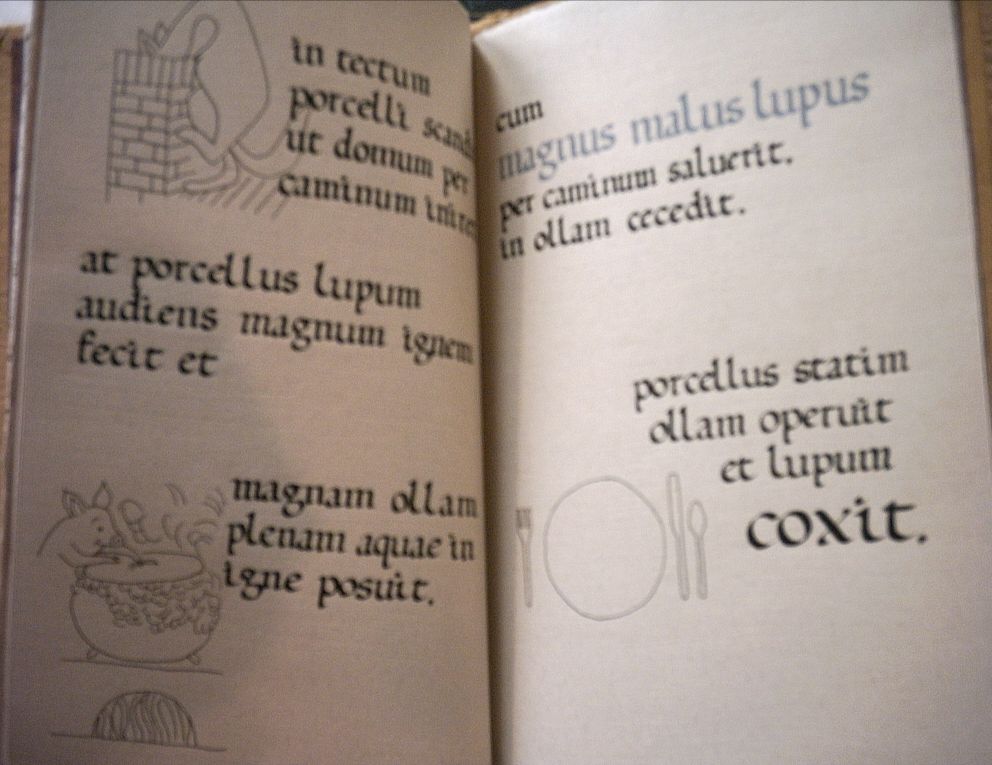 in tectum
porcelli
ut domum per
caminum
at porcellus lupum
audiens magnum ignem
fecit et
magnam ollam
plenam aquae in
igne posuit.
cum
magnus malus lupus
per caminum saluerit.
in ollam cecedit.
porcellus statim
ollam operuit
et lupum
coxit.